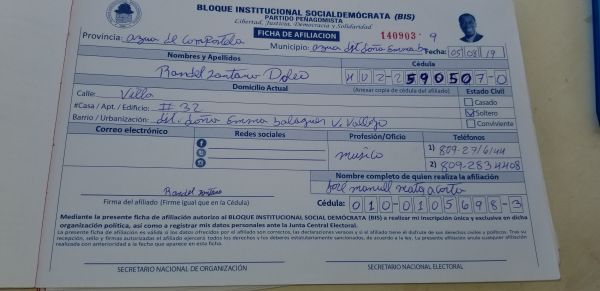 BLOQUE INSTITUCIONAL SOCIALDEMÓCRATA (BIS)
PARTIDO PEÑAGOMISTA
Libertad, Justicia, Democracia y Solidaridad
FICHA DE AFILIACION
140903 9
Provincia: azua de Compostela Municipio: azua Fecha: 05/08/19
Nombres y Apellidos Cédula
Randel Santano 590507-0
Domicilio Actual (Anexar copia de cédula del afiliado) Estado Civil
Calle: Villa
Casado
#Casa / Apt. / Edificio: # 32
Soltero
Barrio / Urbanización: Dst. Doña Emma balaguer V. Vallejo
Conviviente
Correo electrónico Redes sociales Profesión/Oficio Teléfonos
musico
1) 809-27/6144
2) 809-2834408
Nombre completo de quien realiza la afiliación
José manuel
Randel Santano
Firma del afiliado (Firme igual que en la Cédula)
Cédula: 010-0105698-3
Mediante la presente ficha de afiliación autorizo al BLOQUE INSTITUCIONAL SOCIAL DEMÓCRATA (BIS) a realizar mi inscripción única y exclusiva en dicha
organización política, así como a registrar mis datos personales ante la Junta Central Electoral.
La presente ficha de afiliación es válida si los datos ofrecidos por el afiliado son correctos, las declaraciones versus si el afiliado tiene el disfrute de sus derechos civiles y políticos. Tras su
recepción, sello y firmas autorizadas el afiliado ejercerá todos los derechos y los deberes estatutariamente sancionados, de acuerdo a la ley. La presente afiliación anula cualquier afiliación
realizada con anterioridad a la fecha que aparece en esta ficha.
SECRETARIO NACIONAL DE ORGANIZACIÓN SECRETARIO NACIONAL ELECTORAL